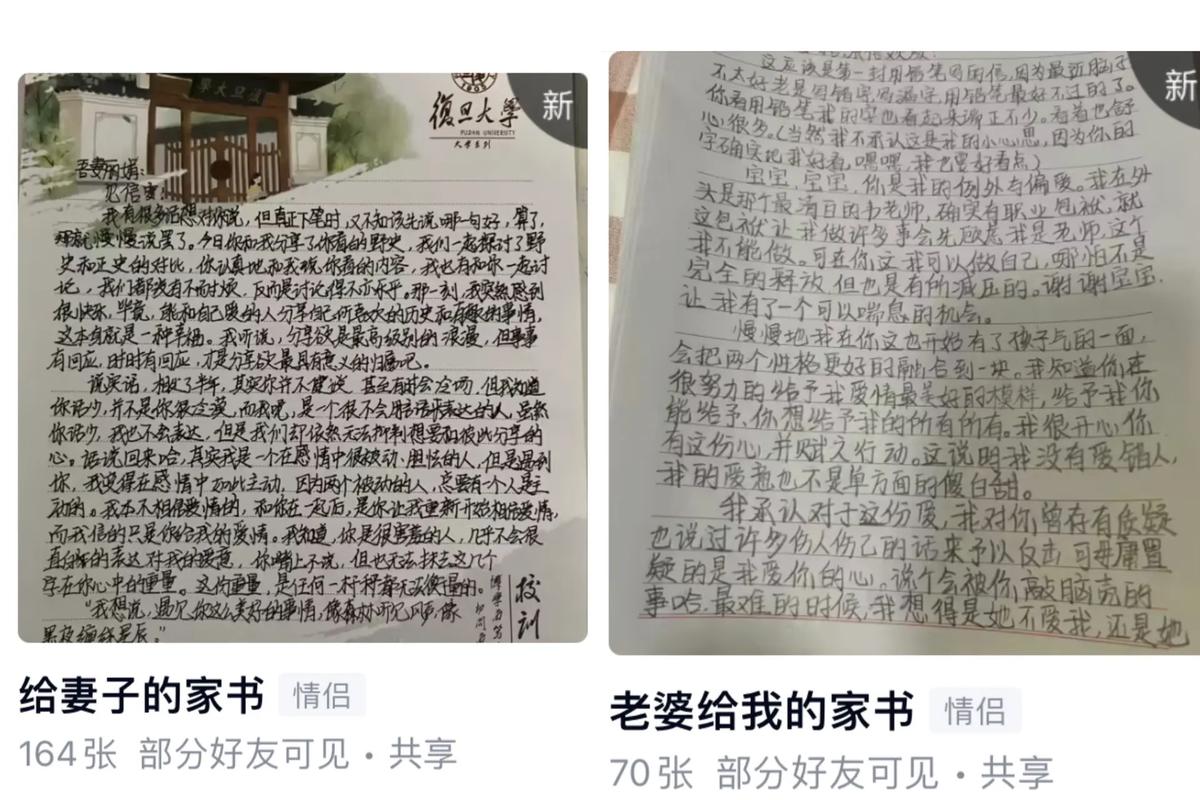 新
復旦大學
FUDAN UNIVERSITY
大学系列
吾妻丽娟:
见信安!
我有很多话想对你说,但真正下笔时,又不知该先说哪一句好,算了,
那就慢慢说罢了。今日你和我分享了你看的野史,我们一起探讨了野
史和正史的对比,你认真地和我说你看的内容,我也有和你一起讨
论,我们都没有不耐烦,反而是讨论得不亦乐乎。那一刻,我突然感到
很快乐,毕竟,能和自己爱的人分享自己所喜欢的历史和有趣的事情,
这本身就是一种幸福。我听说,分享欲是最高级别的浪漫,但事事
有回应,时时有回应,才是分享欲最具有意义的归宿吧。
说实话,相处了半年,其实你并不健谈,甚至有时会冷场,但我知道
你话少,并不是你很冷漠,而我呢,是一个很不会用话语表达的人,虽然
你话少,我也不会表达,但是我们却依然无法抑制想要和彼此分享的
心。话说回来哈,其实我是一个在感情中很被动、胆怯的人,但是遇到
你,我觉得在感情中如此主动,因为两个被动的人,总要有一个人是主
动的。我本不相信爱情的,和你在一起后,是你让我重新开始相信爱情,
而我信的只是你给我的爱情。我知道,你是很害羞的人,几乎不会很
直白的表达对我的爱意,你嘴上不说,但也无法抹去这几个
字在你心中的重量。这份重量,是任何一杆秤都无法衡量的。
“我想说,遇见你这么美好的事情,像森林听见风声,像
黑夜缠绵星辰。”
校训
给妻子的家书 情侣
164张 部分好友可见・共享
新
这应该是第一封用铅笔写的信,因为最近脑子
不太好老是写错字写漏字,用铅笔最好不过的了。
你看用铅笔我的字也看起来端正不少。看着也舒
心很多。(当然我不承认这是我的小心思,因为你的
字确实比我好看,嘿嘿,我也要好看点)
宝宝,宝宝,你是我的例外与偏爱。我在外
头是那个最清白的书老师,确实有职业包袱,就
这包袱让我做许多事会先顾忌我是老师,这个
我不能做。可在你这我可以做自己,哪怕不是
完全的释放,但也是有所减压的。谢谢宝宝,
让我有了一个可以喘息的机会。
慢慢地我在你这也开始有了孩子气的一面,
会把两个性格更好的融合到一块。我知道你在
很努力的给予我爱情最美好的模样,给予我你
能给予、你想给予我的所有所有。我很开心,你
有这份心,并赋之行动。这说明我没有爱错人,
我的爱意也不是单方面的傻白甜。
我承认对于这份爱,我对你曾存有质疑
也说过许多伤人伤己的话来予以反击,可毋庸置
疑的是我爱你的心。说个会被你敲脑壳的
事哈,最难的时候,我想得是她不爱我,还是她
老婆给我的家书 情侣
70张 部分好友可见・共享